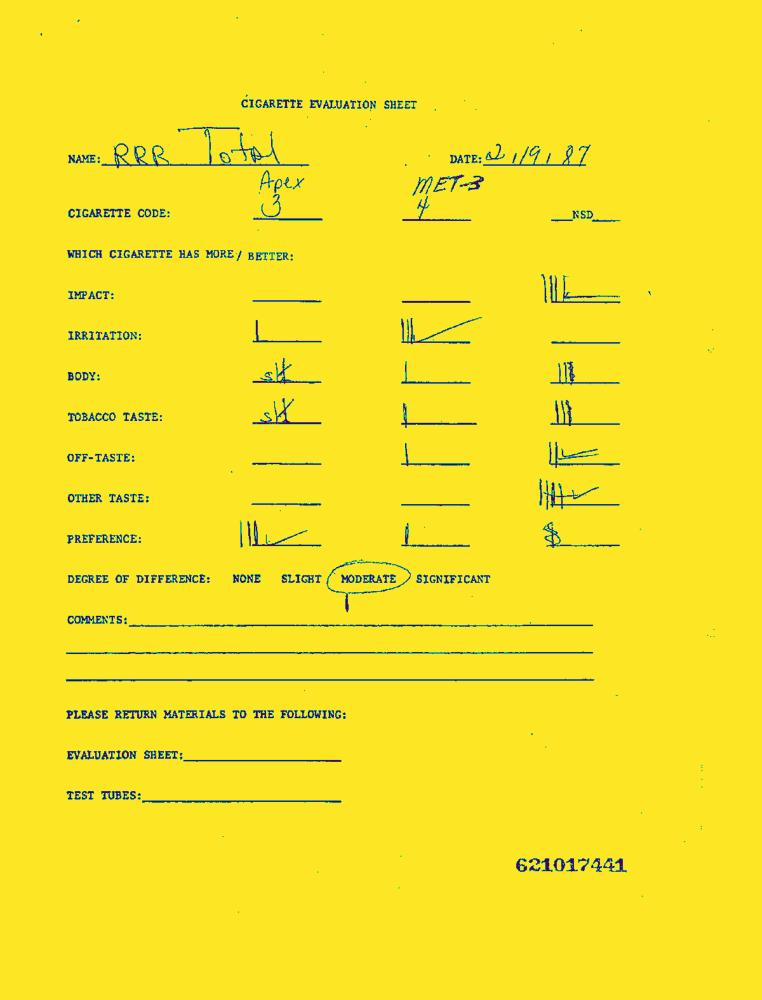 CIGARETTE EVALUATION SHEET
NAME: RRR Total DATE: 2/9/87
Apex MET-3
CIGARETTE CODE: 3 4 NSD
WHICH CIGARETTE HAS MORE/ BETTER:
IMPACT:
IRRITATION:
BODY:
TOBACCO TASTE:
OFF-TASTE:
OTHER TASTE:
PREFERENCE:
DEGREE OF DIFFERENCE: NONE SLIGHT MODERATE SIGNIFICANT
COMMENTS:
PLEASE RETURN MATERIALS TO THE FOLLOWING:
EVALUATION SHEET:
TEST TUBES:
621017441